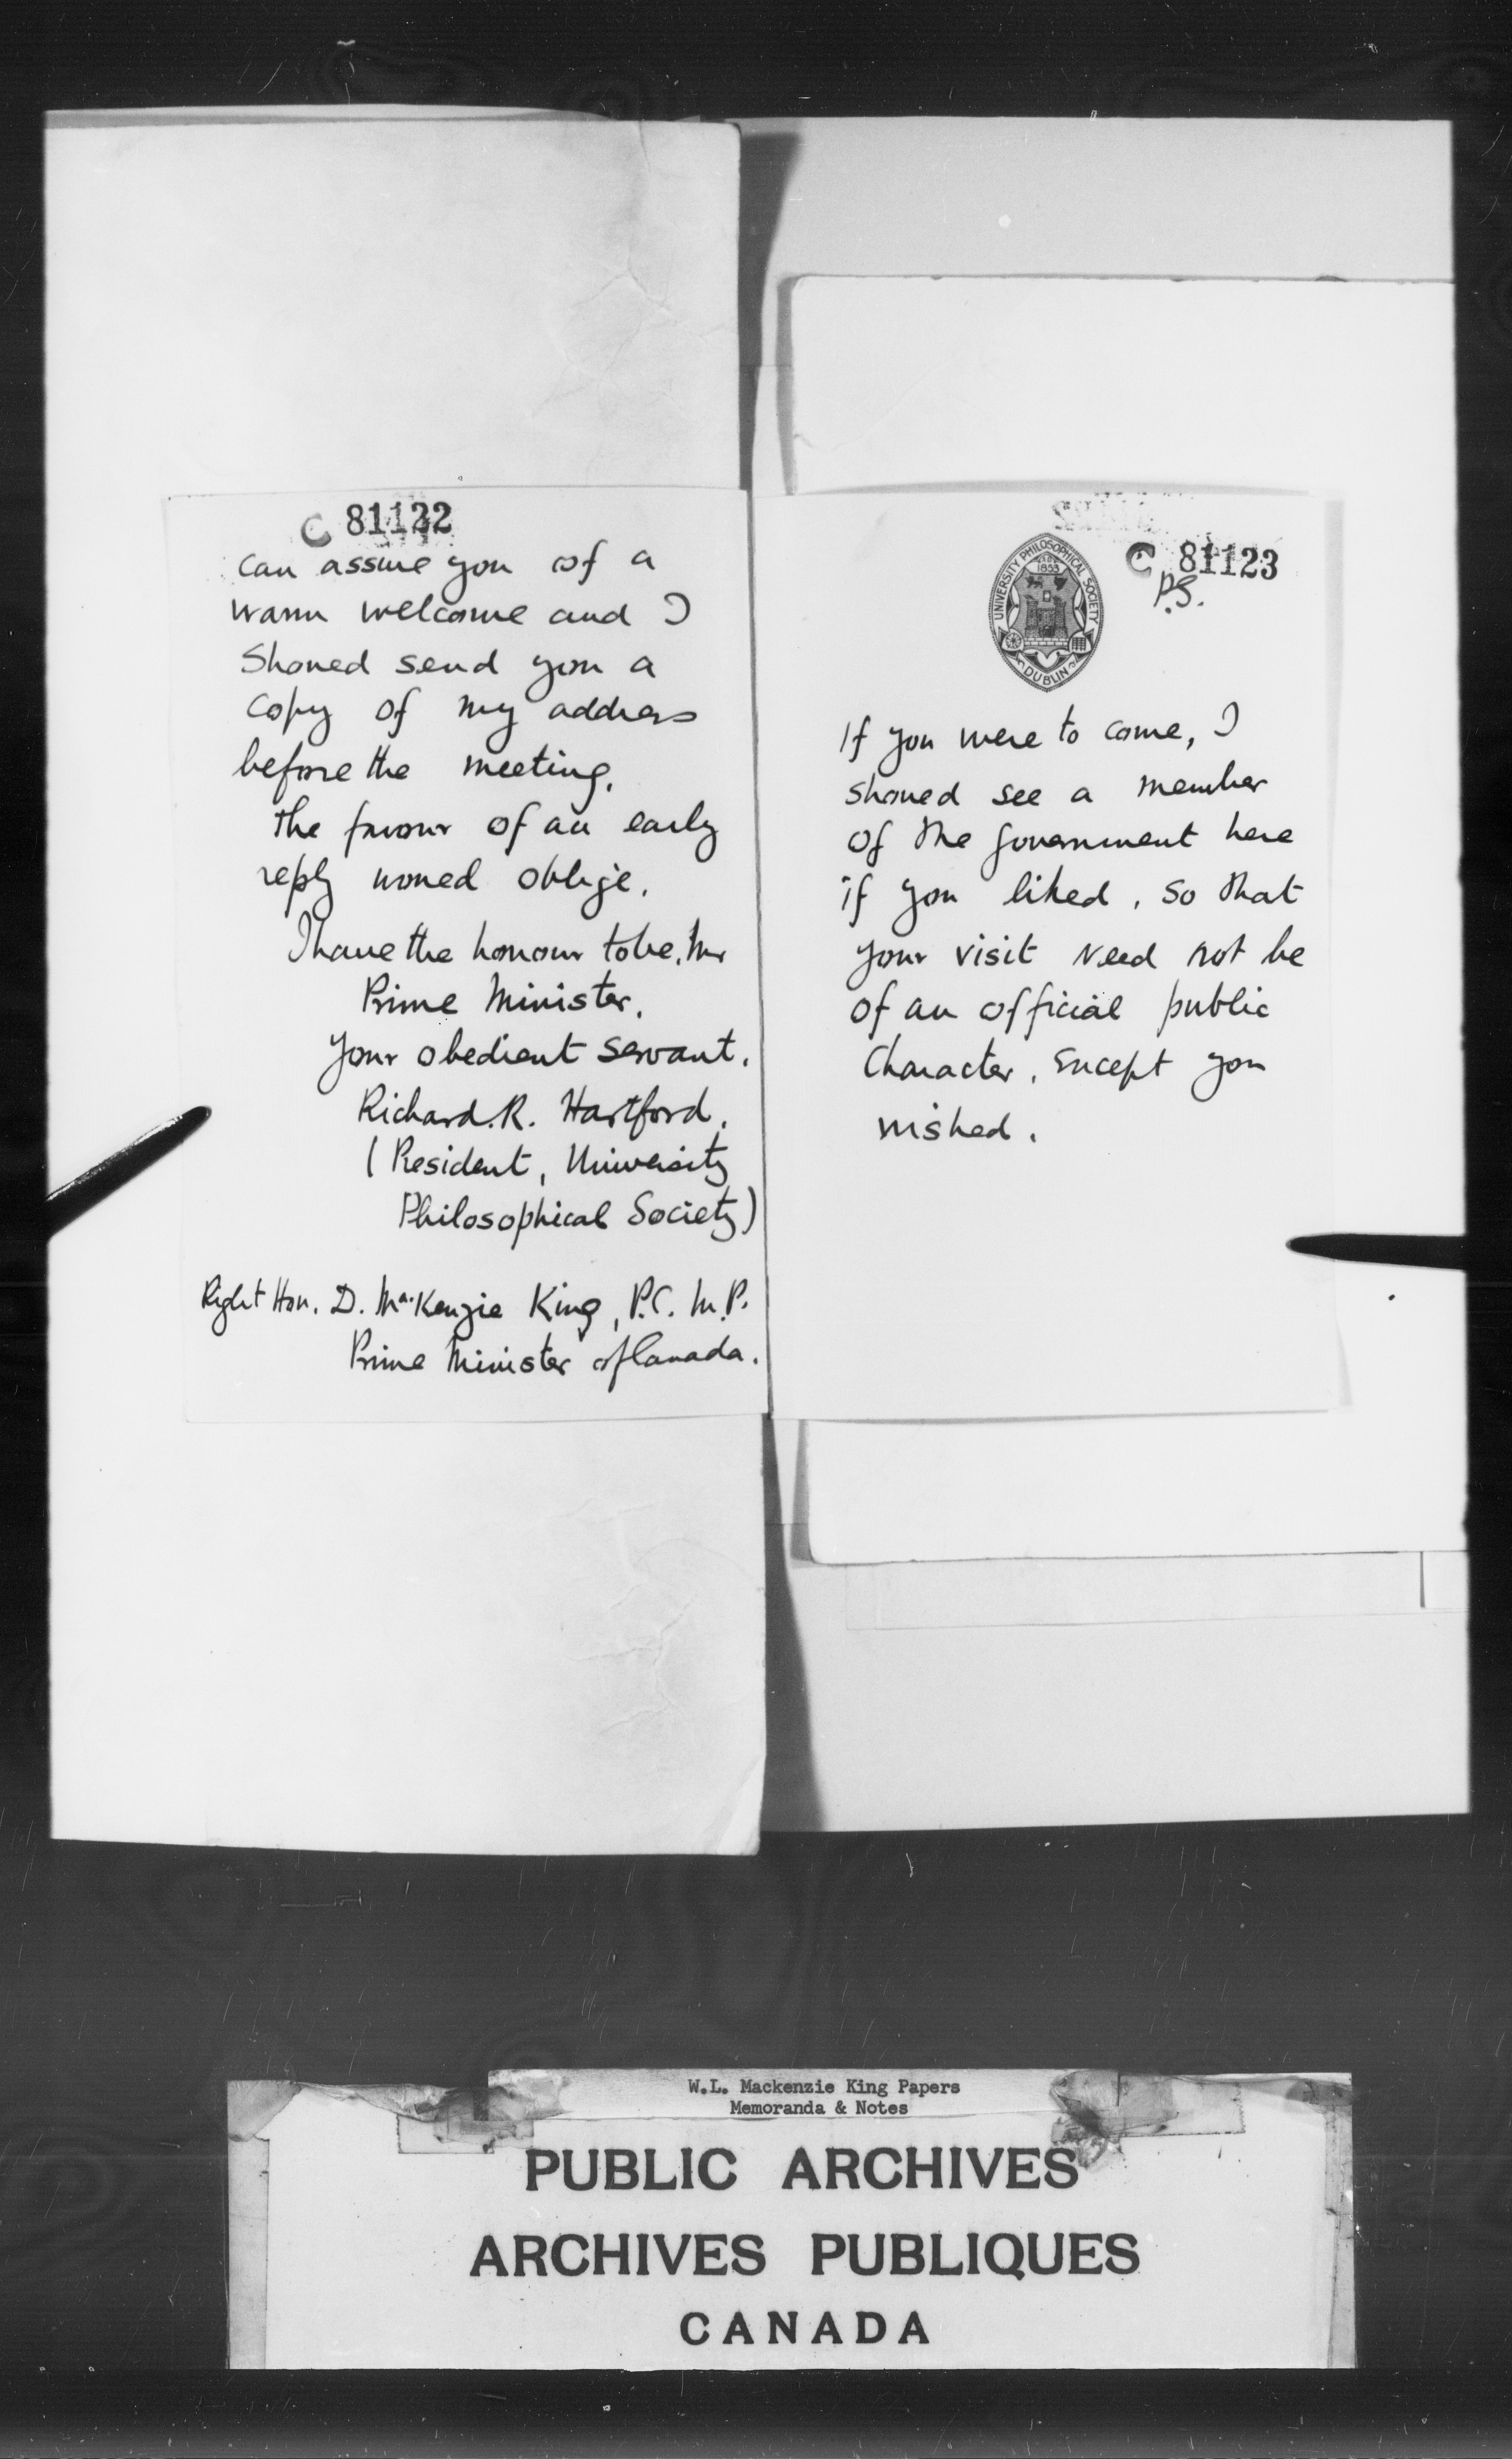 C 81122
can assure you of a
warm welcome and I
should send you a
copy of my address
before the meeting.
The favour of an early
reply would oblige.
I have the honour to be, Mr
Prime Minister,
Your obedient servant.
Richard. R. Hartford.
(President, University
Philosophical Society)
Right Hon. D. MacKenzie King, P.C. M.P.
Prime Minister of Canada.
C 81123
P.S.
UNIVERSITY PHILOSOPHICAL SOCIETY
1853
DUBLIN
If you were to come, I
should see a member
of the government here
if you liked, so that
your visit need not be
of an official public
character, except you
wished.
W.L. Mackenzie King Papers
Memoranda & Notes
PUBLIC ARCHIVES
ARCHIVES PUBLIQUES
CANADA